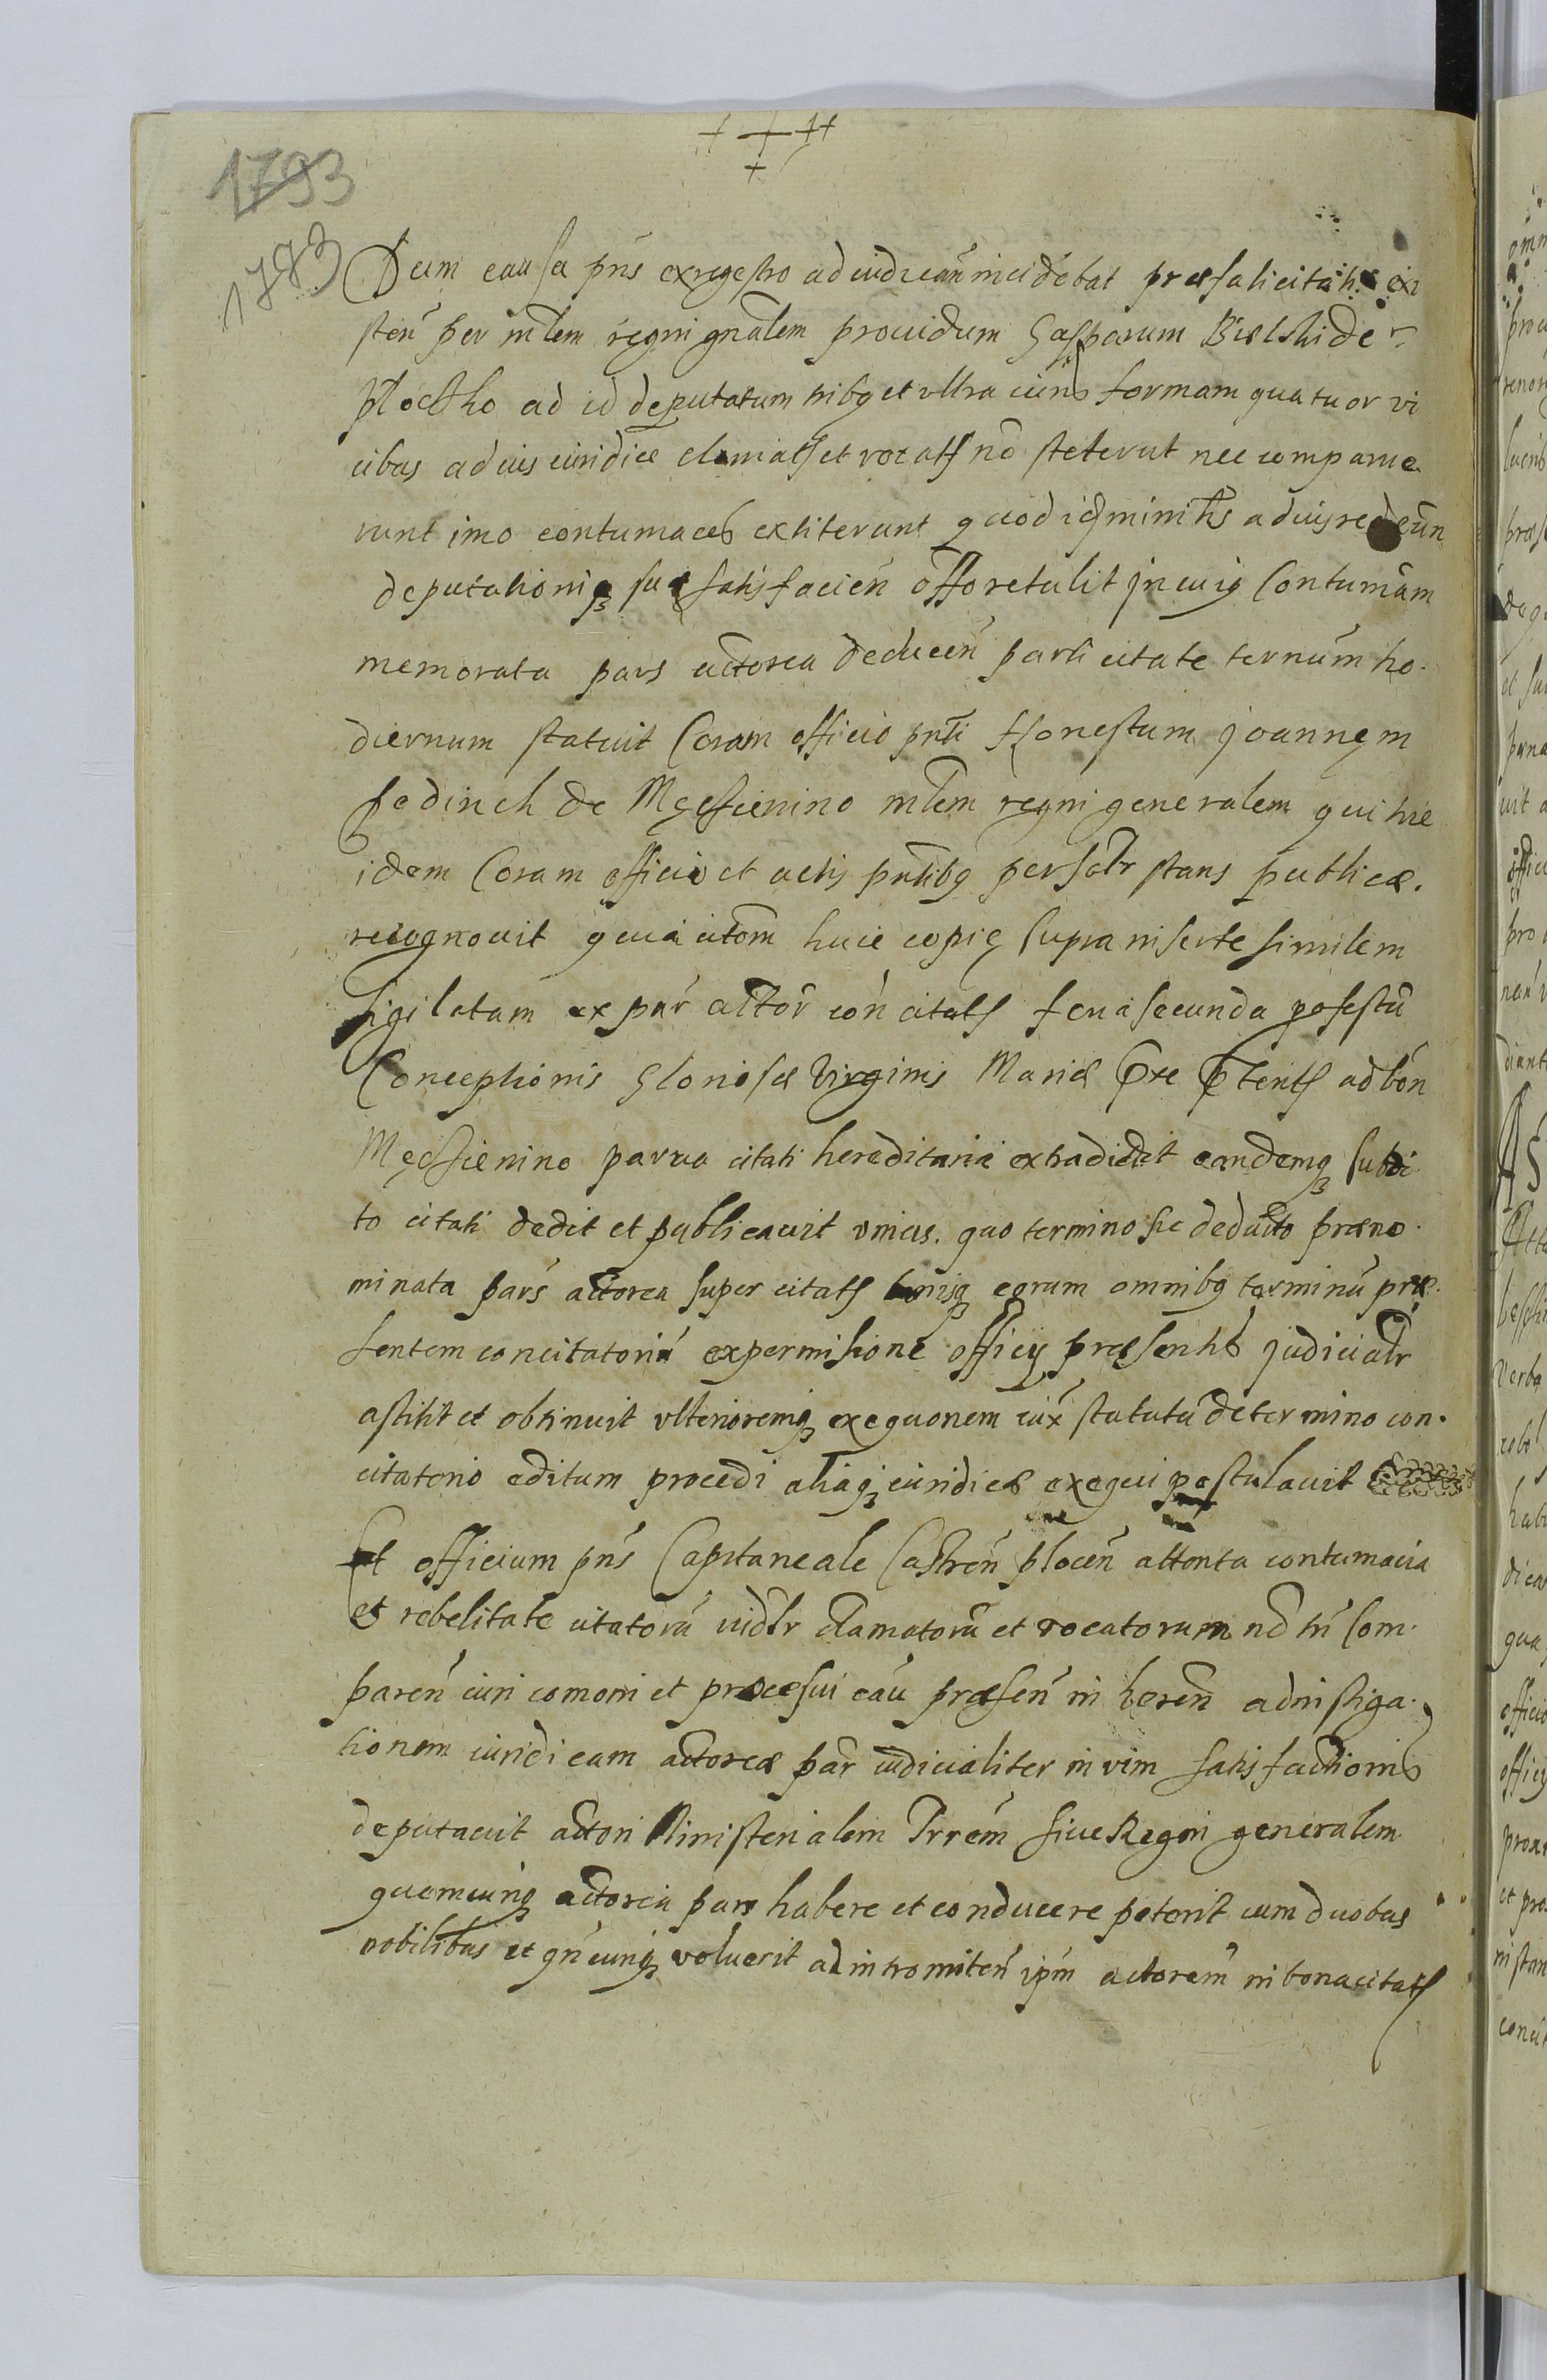 1793
1783
Dum causa pns̄ ex regestro ad iudicān incidebat præfati citati exi
sten̄ per mlem̄ regni gnālem prouidum Gasparum Bielski de
Plocsko ad id deputatum tribꝫ et vltra iuris formam quatuor vi
cibus ad ius iuridice clamati et vocati nō steterut nec comparue
runt imo contumaces extiterunt quod idē ministls̄ ad ius redeūn
deputationiqꝫ suæ satisfacien̄ offo retulit In cuiꝫ Contumām
memorata pars actorea deducen̄ parti citate termūm ho
diernum statuit Coram officio pnt̄i Honestum Joannem
Sedinek de Męcsienino mlem̄ regni generalem qui hic
idem Coram officio et actis pnt̄ibꝫ persolr̄ stans publicæ
recognouit quia citōm huic copię supra inserte similem
sigilatam ex par̄ actor̄ cōn citatos feria secunda po festū
Conceptionis Gloriosæ Virginis Mariæ ad bon̄
Męcsienino parua citati hereditaria extradidit eandemqꝫ subdi
to citati dedit et publicauit vnicus. quo termino sic deducto præno
minata pars actorea super citatos bonisqꝫ eorum omnibꝫ terminū præ
sentem concitatoriū ex permisione officij præsentis judicialr̄
astitit et obtinuit vlterioremqꝫ exequonem iux̄ statutū de termino con
citatorio editum procedi aliaqꝫ iuridicæ exequi postulauit
Et officium pns̄ Capitaneale Castren̄ plocen̄ attenta contumacia
et rebelitate citatorū vidlr̄ clamatorū et vocatorum nō tn̄ Com
paren̄ iuri comoni et procesui cau̅ præsen̄ in heren̄ ad instiga
tionem iuridicam actoreæ par̄ iudicialiter in vim satisfactionis
deputauit actori Ministerialem Trrēm siue Regni generalem
quemcunqꝫ actorea pars habere et conducere poterit cum duobus
nobilibus et qn̄cunqꝫ voluerit ad intromiten̄ ipm̄ actorem̄ in bona citati